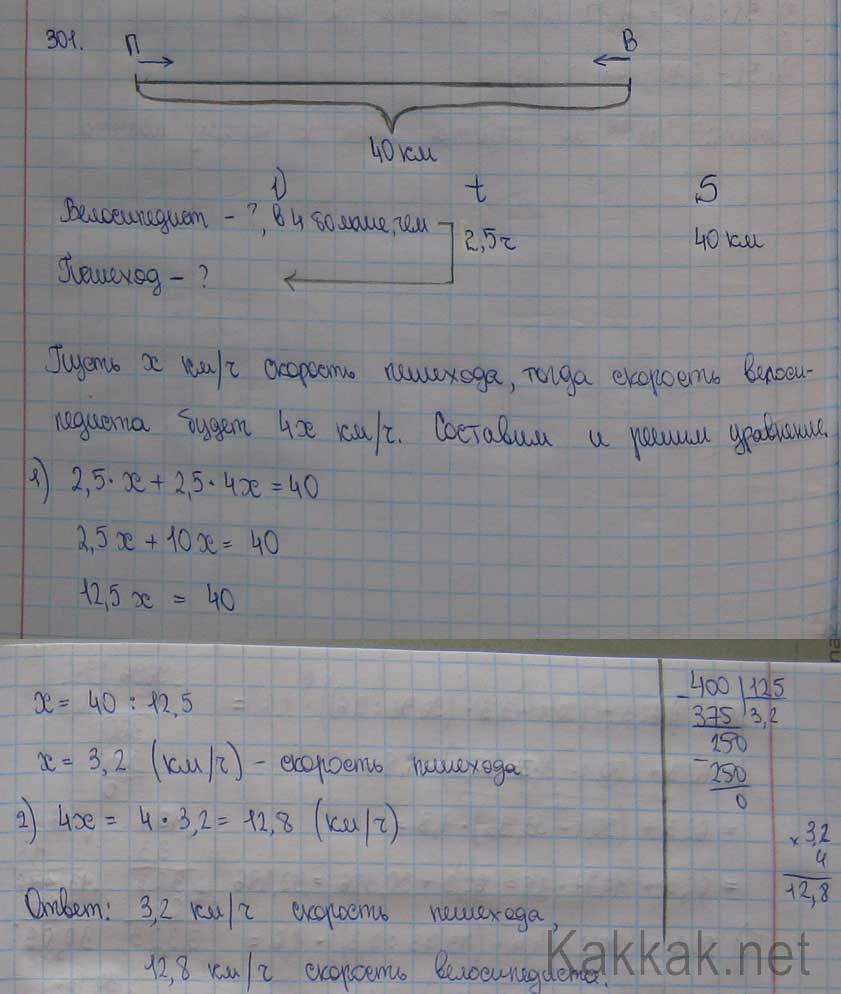 301. П В
40 км
v t S
Велосипедист - ?, в 4 больше, чем 2,5ч 40 км
Пешеход - ?
Пусть x км/ч скорость пешехода, тогда скорость велоси-
педиста будет 4x км/ч. Составим и решим уравнение.
1) 2,5·x + 2,5·4x = 40
2,5x + 10x = 40
12,5x = 40
x = 40 : 12,5
x = 3,2 (км/ч) - скорость пешехода
2) 4x = 4·3,2 = 12,8 (км/ч)
Ответ: 3,2 км/ч скорость пешехода,
12,8 км/ч скорость велосипедиста.
- 400 | 125
375 | 3,2
- 250
250
0
× 3,2
4
12,8
Kakkak.net